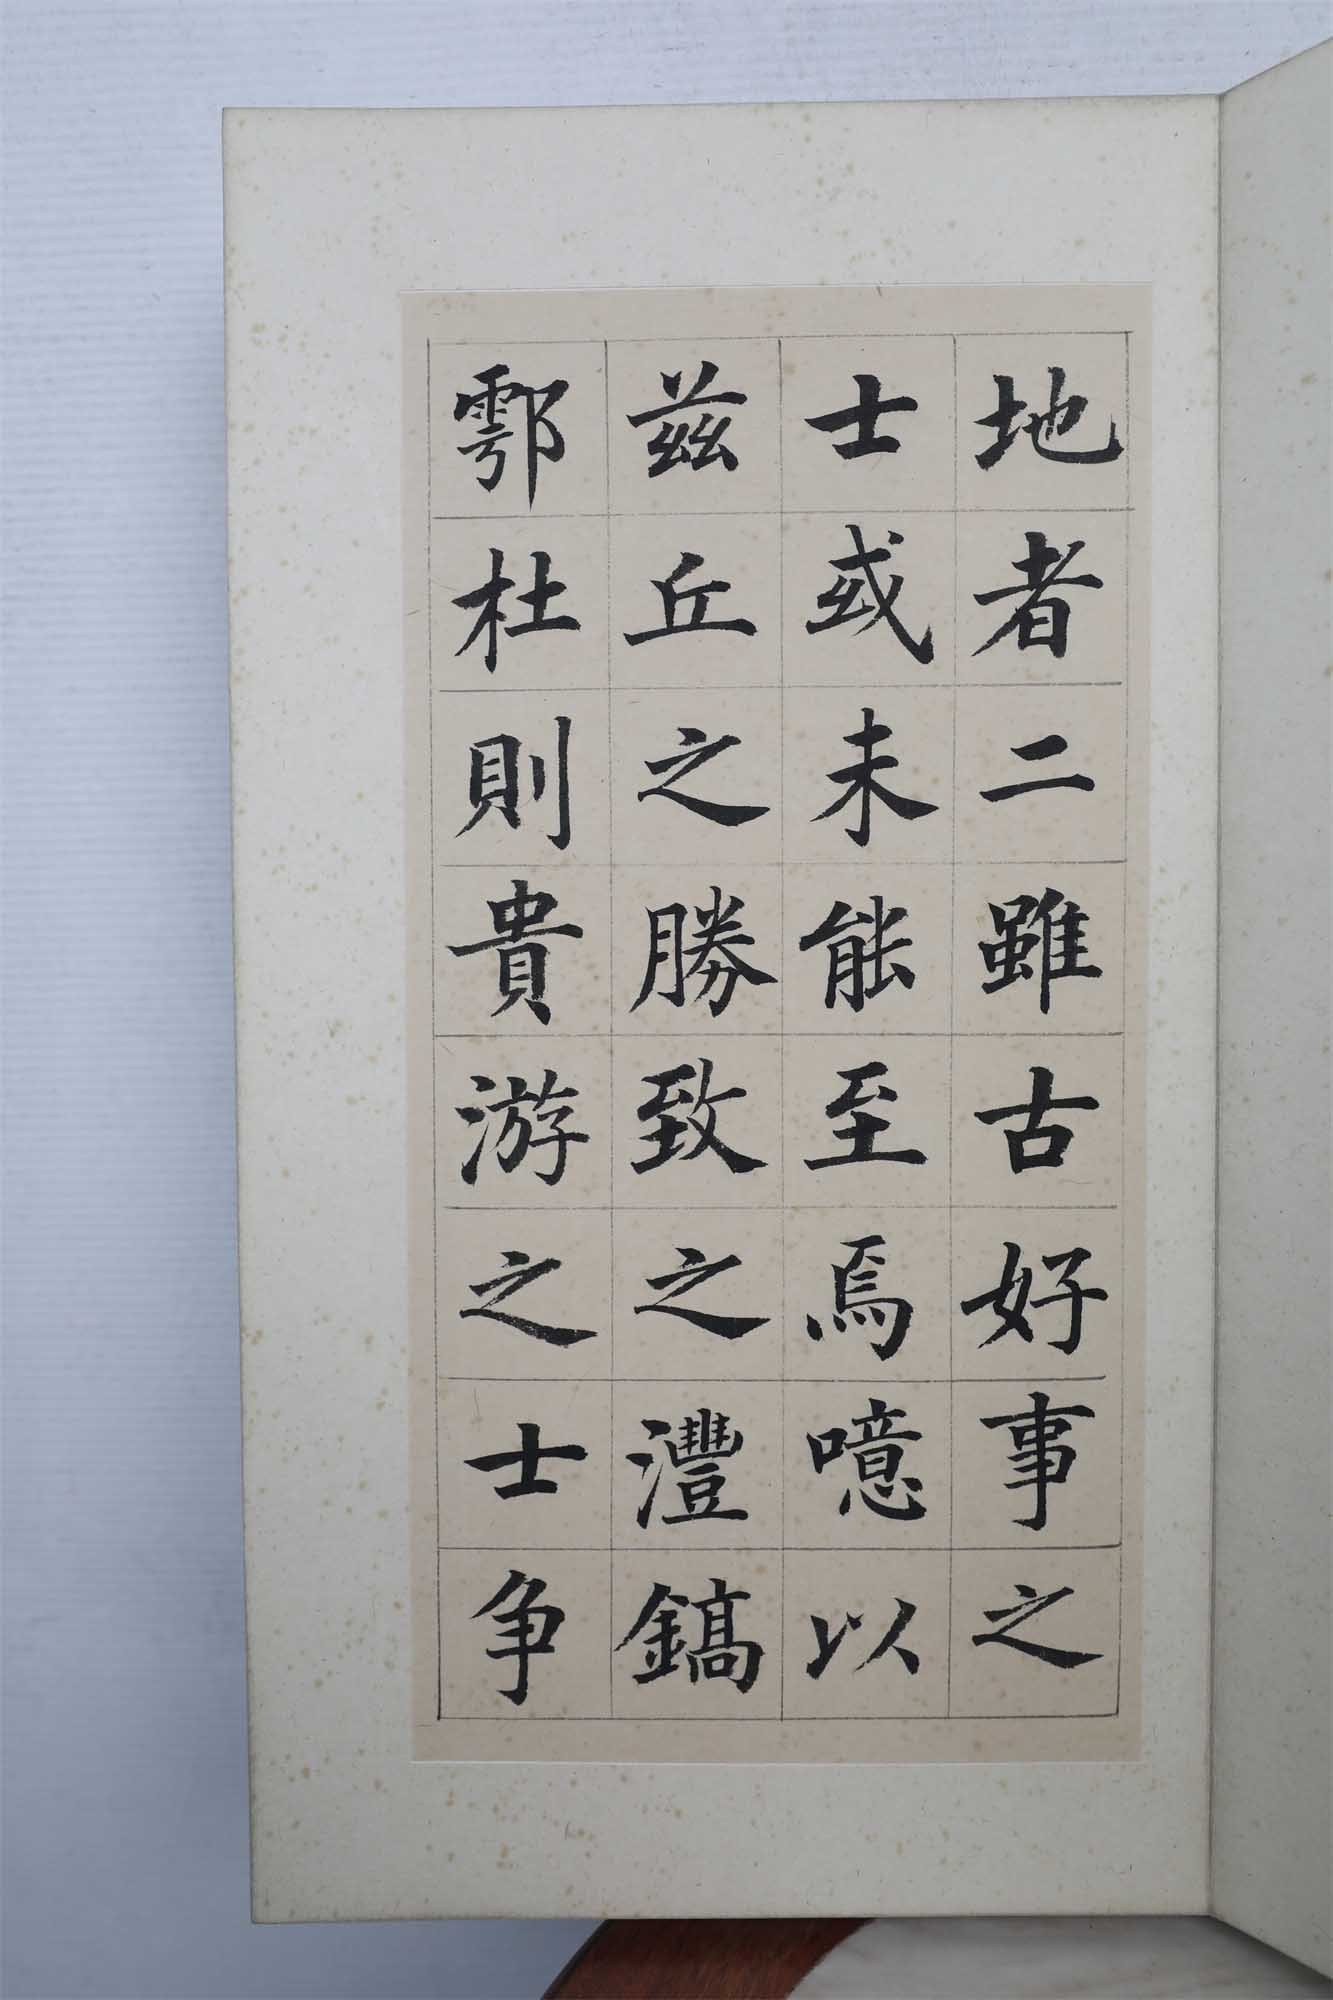 地者二雖古好事之
士或未能至焉噫以
茲丘之勝致之灃鎬
鄠杜則貴游之士争